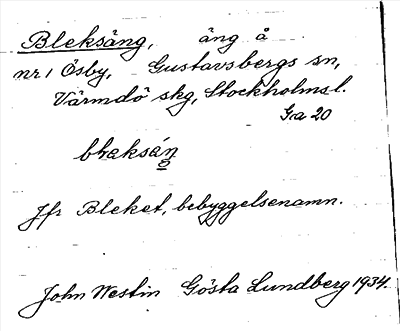 Bleksäng, äng å
nr 1 Ösby, Gustavsbergs sn,
Värmdö skg, Stockholms l.
Ga 20
Jfr Bleket, bebyggelsenamn.
John Westin Gösta Lundberg 1934.